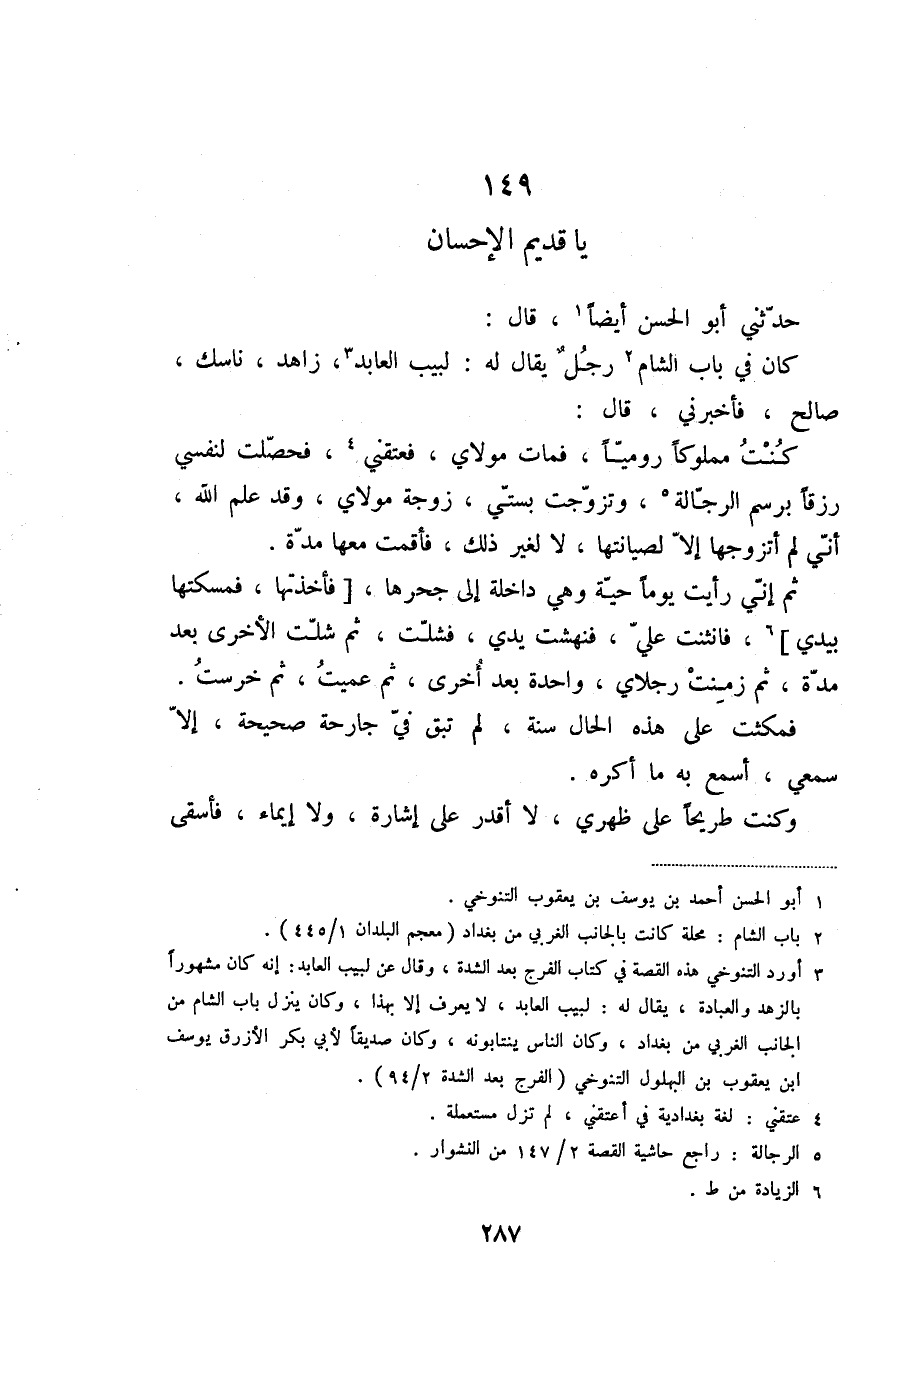 ١٤٩
يا قديم الإحسان
حدّثني أبو الحسن أيضاً١ ، قال :
كان في باب الشام٢ رجُلٌ يقال له : لبيب العابد٣، زاهد ، ناسك ،
صالح ، فأخبرني ، قال :
كُنْتُ مملوكاً روميّاً ، فمات مولاي ، فعتقني٤ ، فحصّلت لنفسي
رزقاً برسم الرجّالة٥ ، وتزوّجت بستّي ، زوجة مولاي ، وقد علم الله ،
أنّي لم أتزوجها إلاّ لصيانتها ، لا لغير ذلك ، فأقمت معها مدّة .
ثم إنّي رأيت يوماً حيّة وهي داخلة إلى جحرها ، [ فأخذتها ، فمسكتها
بيدي ]٦ ، فانثنت عليّ ، فنهشت يدي ، فشلّت ، ثم شلّت الأخرى بعد
مدّة ، ثم زمِنتْ رجلاي ، واحدة بعد أُخرى ، ثم عميتُ ، ثم خرستُ .
فمكثت على هذه الحال سنة ، لم تبق فيّ جارحة صحيحة ، إلاّ
سمعي ، أسمع به ما أكره .
وكنت طريحاً على ظهري ، لا أقدر على إشارة ، ولا إيماء ، فأسقى
١ أبو الحسن أحمد بن يوسف بن يعقوب التنوخي .
٢ باب الشام : محلة كانت بالجانب الغربي من بغداد ( معجم البلدان ٤٤٥/١ ) .
٣ أورد التنوخي هذه القصة في كتاب الفرج بعد الشدة ، وقال عن لبيب العابد: إنه كان مشهوراً
بالزهد والعبادة ، يقال له : لبيب العابد ، لا يعرف إلا بهذا ، وكان ينزل باب الشام من
الجانب الغربي من بغداد ، وكان الناس ينتابونه ، وكان صديقاً لأبي بكر الأزرق يوسف
ابن يعقوب بن البهلول التنوخي ( الفرج بعد الشدة ٩٤/٢ ) .
٤ عتقني : لغة بغدادية في أعتقني ، لم تزل مستعملة .
٥ الرجالة : راجع حاشية القصة ١٤٧/٢ من النشوار .
٦ الزيادة من ط .
٢٨٧